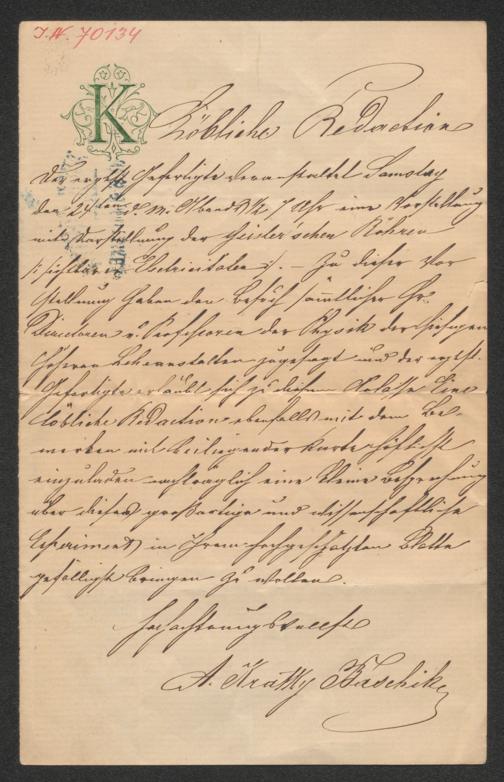 I.N. 70134
K
Löbliche Redaction
Der ergebst Gefertigte veranstaltet Samstag
den 24ten d. M. Abends ½ 7 Uhr eine Vorstellung
mit Darstellung der Geisler'schen Röhren
/: sichtbare Electricität :/. – Zu dieser Vor
stellung haben den Besuch sämtlicher Hr.
Directoren u. Professoren der Physik der hiesigen
höheren Lehranstalten zugesagt und der ergebst.
Gefertigte erlaubt sich zu diesem Anlasse Eine
löbliche Redaction ebenfalls mit dem Be-
merken mit beiliegender Karte höflichst
einzuladen nachträglich eine kleine Besprechung
über dieses großartige und wissenschaftliche
Experiment in Ihrem hochgeschätzten Blatte
gefälligst bringen zu wollen.
Hochachtungsvollst
A. Kratky Baschik